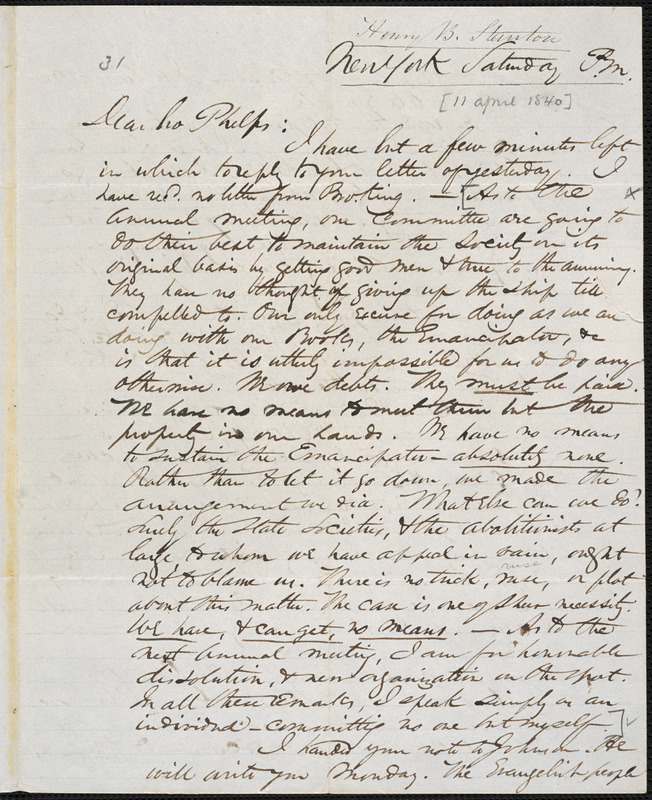 Henry B. Stanton
31
New York Saturday P.m.
[11 april 1840]
Dear bro Phelps:
I have but a few minutes left
in which to reply to your letter of yesterday. I
have recd. no letter from Bro
. — [As to the x
Annual meeting, our Committee are going to
do their best to maintain the Society on its
original basis by getting good men & true to the anniny.
They have no thought of giving up the ship till
compelled to. Our only excuse for doing as we are
doing with our Books, the Emancipator, &c
is that it is utterly impossible for us to do any
otherwise. We owe debts. They must be paid.
We have no means to meet them but the
property in our hands. We have no means
to sustain the Emancipator – absolutely none.
Rather than to let it go down, we made the
arrangement we did. What else can we do?
Surely the State Societies, & the abolitionists at
large, to whom we have appeal in vain, ought
not to blame us. There is no trick, ruse, or plot
ruse
about this matter. The case is one of sheer necessity.
We have, & can get, no means. — As to the
next Annual meeting, I am for honorable
dissolution, & new organization on the spot.
In all these remarks, I speak simply as an
individual – committing no one but myself.]
I handed your note to Johnson. He
will write you Monday. The Evangelist people